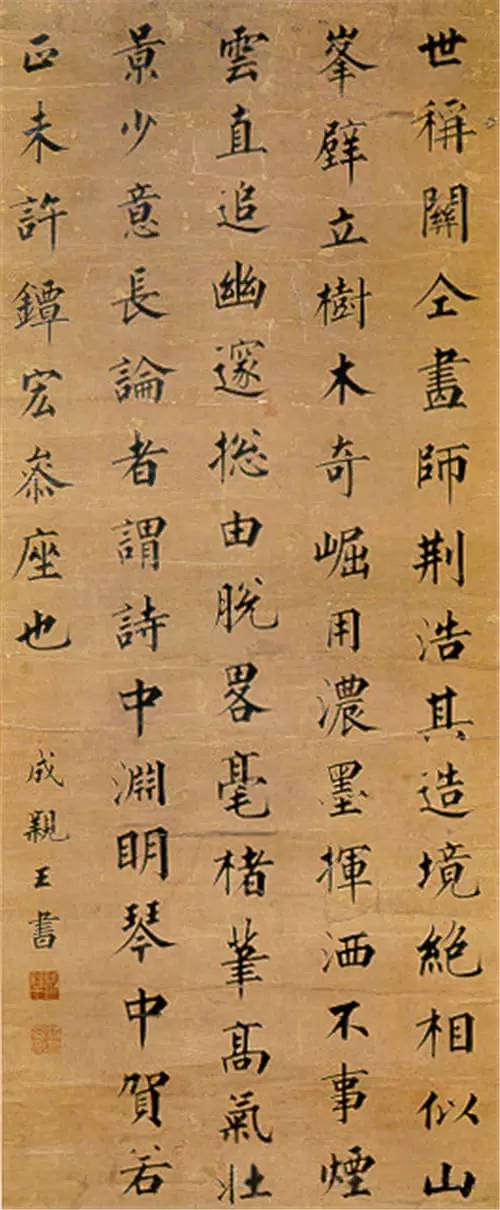 世稱關仝畫師荆浩其造境絶相似山
峯壁立樹木奇崛用濃墨揮洒不事煙
雲直追幽邃摠由脫畧毫楮筆高氣壯
景少意長論者謂詩中淵明琴中賀若
正未許鐔宏叅座也
成親王書